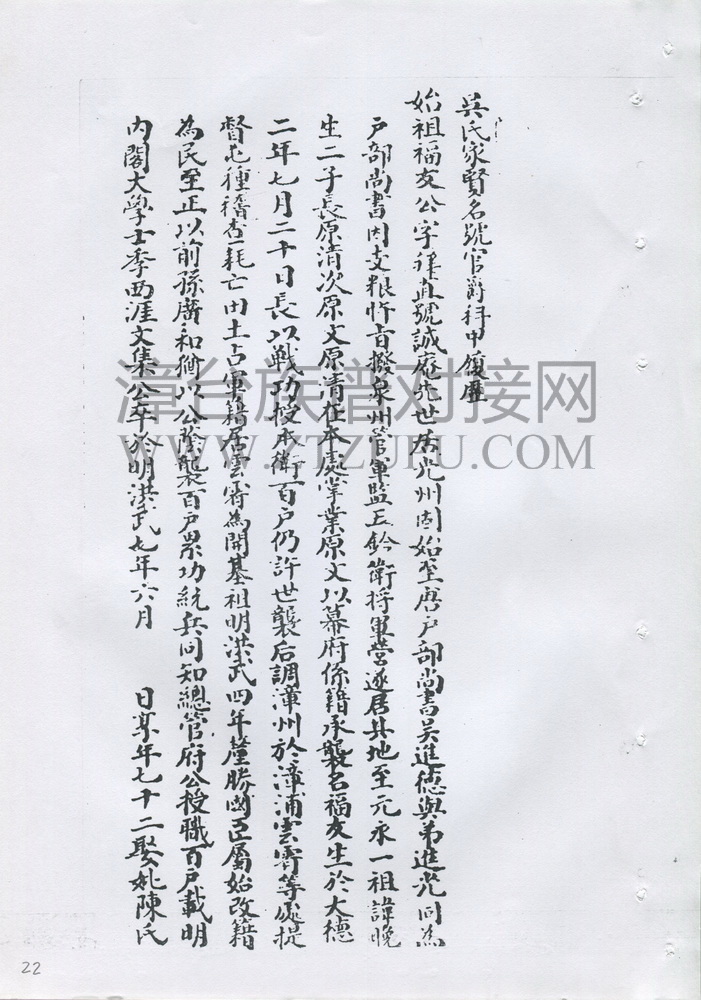 吳氏家賢名號官爵科甲履歷
始祖福友公字 直號誠庵先世居光州固始至唐户部尚書吴進德與弟進光同為
戶部尚書因支粮忤旨撥泉州管軍監五鈐衛将軍營遂居其地至元永一祖諱晚
生二子長原清次原文原清在本處掌業原文以幕府係籍承襲名福友生於大德
二年七月二十日長以戰功授本衛百户仍許世襲后調漳州於漳浦雲霄等處提
督屯種稽查耗亡田土占軍籍居雲霄為開基祖明洪武四年 勝國臣屬始改籍
為民至正以前孫廣和猶以公 襲百戶累功統兵同知總管府公授職百户載明
内閣大學士李西涯文集公卒於明洪武七年六月 日享年七十二娶妣陳氏
漳台族谱对接网
WWW.ZTZUPU.COM
22